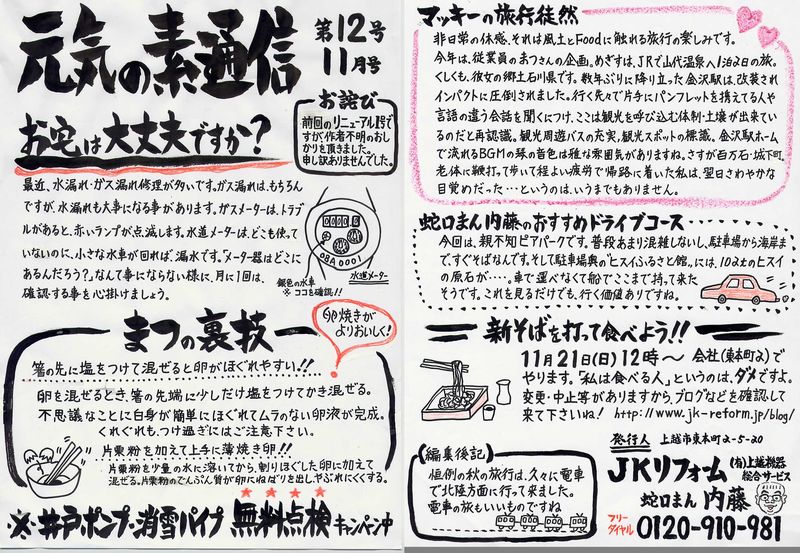 元気の素通信
第12号
11月号
お宅は大丈夫ですか?
お詫び
前回のリニューアル誌で
すが作者不明のおし
かりを頂きました。
申し訳ありませんでした。
最近、水漏れ・ガス漏れ修理が多いです。ガス漏れは、もちろん
ですが、水漏れも大事になる事があります。ガスメーターは、トラブ
ルがあると、赤いランプが点滅します。水道メーターは、どこも使って
いないのに、小さな水車が回れば、漏水です。"メーター器はどこに
あるんだろう?"なんて事にならない様に、月に1回は、
確認する事を心掛けましょう。
08A0001
銀色の水車
※ココを確認!!
水道メーター
まつの裏技
卵焼きが
よりおいしく!
箸の先に塩をつけて混ぜると卵がほぐれやすい!!
卵を混ぜるとき、箸の先端に少しだけ塩をつけてかき混ぜる。
不思議なことに白身が簡単にほぐれてムラのない卵液が完成。
くれぐれも、つけ過ぎにはご注意下さい。
片栗粉を加えて上手に薄焼き卵!!
片栗粉を少量の水に溶いてから、割りほぐした卵に加えて
混ぜる。片栗粉のでんぷん質が卵にねばりを出し、やぶれにくくする。
※井戸ポンプ・消雪パイプ 無料点検 キャンペーン中
マッキーの旅行徒然
非日常の体感、それは風土とFoodに触れる旅行の楽しみです。
今年は、従業員のまつさんの企画。めざすは、JRで山代温泉へ1泊2日の旅。
くしくも、彼女の郷土石川県です。数年ぶりに降り立った金沢駅は、改装され
インパクトに圧倒されました。行く先々で片手にパンフレットを携えてる人や
言語の違う会話を聞くにつけ、ここは観光を呼び込む体制・土壌が出来ている
のだと再認識。観光周遊バスの充実、観光スポットの標識。金沢駅ホーム
で流れるBGMの琴の音色は雅な雰囲気がありますね。さすが百万石・城下町。
老体に鞭打って歩いて程よい疲労で帰路に着いた私は、翌日さわやかな
目覚めだった…というのは、いうまでもありません。
蛇口まん内藤のおすすめドライブコース
今回は、親不知ピアパークです。普段あまり混雑しないし、駐車場から海岸ま
で、すぐそばなんです。そして駐車場奥の"ヒスイふるさと館"には、102tのヒスイ
の原石が…。車で運べなくて船でここまで持って来た
そうです。これを見るだけでも、行く価値ありですね。
新そばを打って食べよう!!
11月21日(日)12時〜 会社(東本町2)で
やります。「私は食べる人」というのは、ダメですよ。
変更・中止等がありますから、ブログなどを確認して
来て下さいね! http://www.jk-reform.jp/blog/
(編集後記)
恒例の秋の旅行は、久々に電車
で北陸方面に行って来ました。
電車の旅もいいものですね
発行人 上越市東本町2-5-20
JKリフォーム (有)上越機器
総合サービス
蛇口まん 内藤
フリー
ダイヤル 0120-910-981